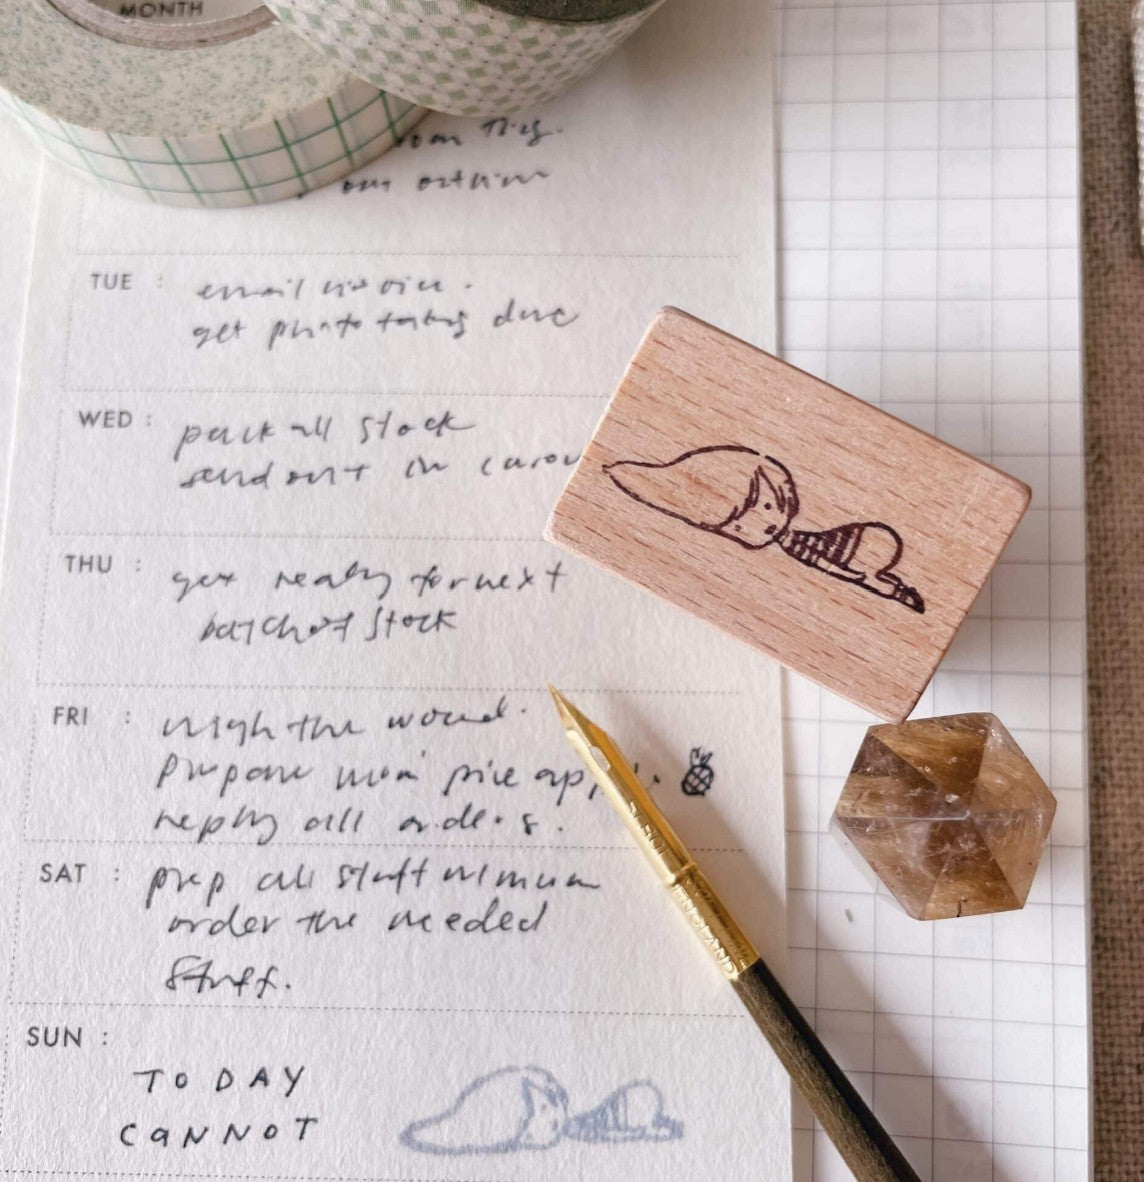 MONTH
TUE :
email invoice.
get photo taking done
WED :
pack all stock
send out in
THU :
get ready for next
batch of stock
FRI :
weigh the wood.
prepare mom pineapple
reply all orders.
SAT :
prep all stuff
order the needed
stuff.
SUN :
TODAY
CANNOT
ENGLAND